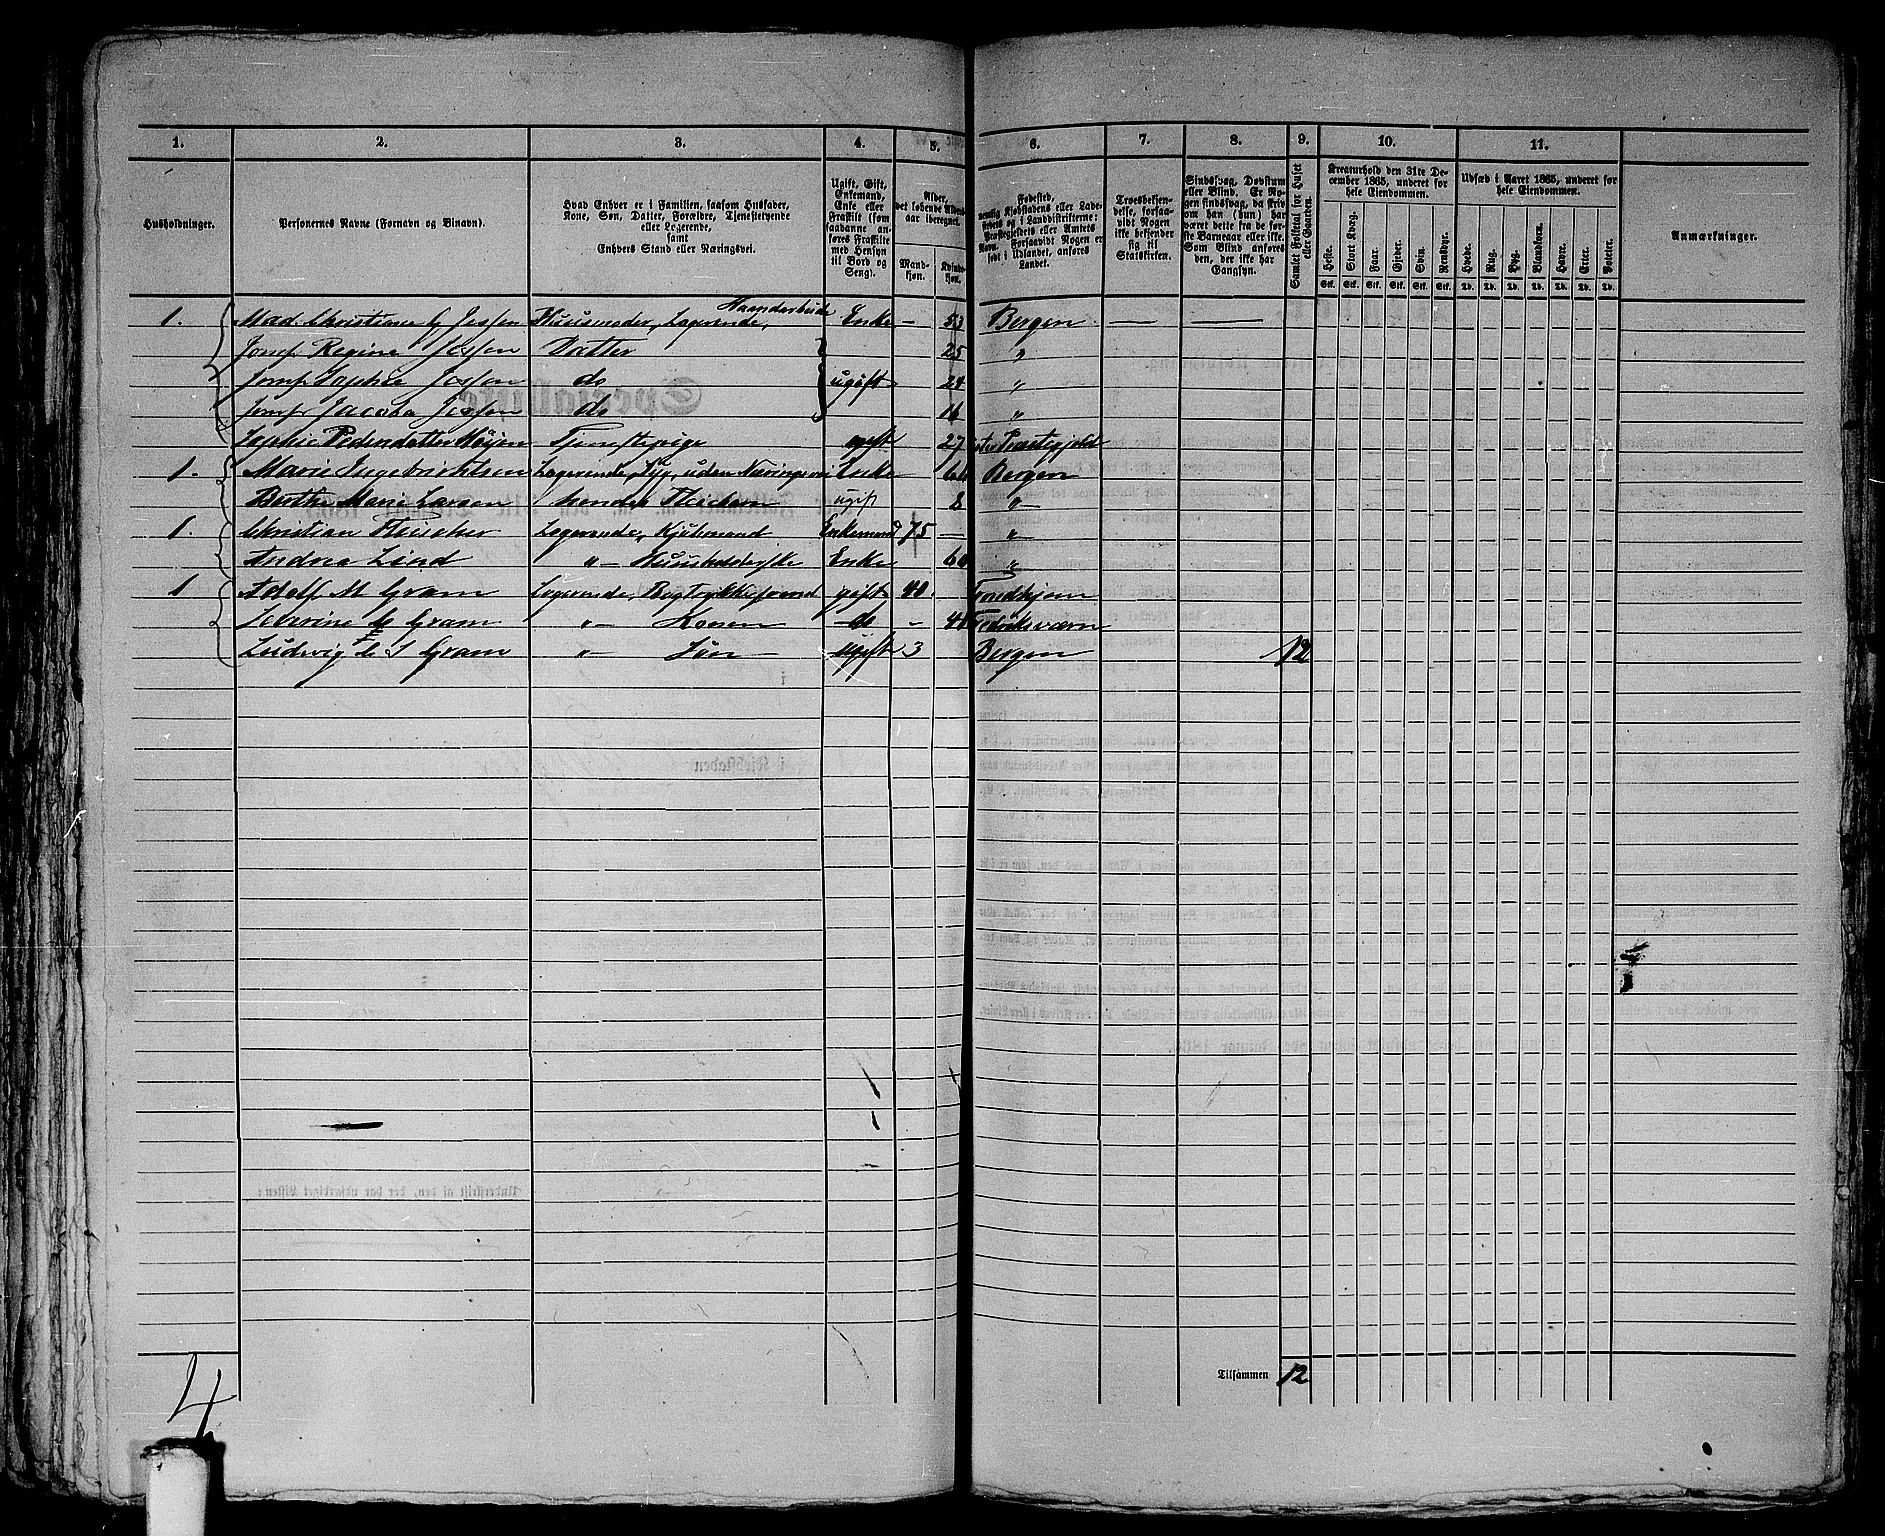 1. 2. 3. 4. 5. 6. 7. 8. 9. 10. 11.
Husholdninger.
Personernes Navne (Fornavn og Binavn).
Hvad Enhver er i Familien, saasom Husfader, Kone, Søn, Datter, Forældre, Tjenestetyende eller Logerende, samt Enhvers Stand eller Næringsvei.
Ugift, Gift, Enkemand, Enke eller Fraskilt (som saadanne anføres Fraskilte med Hensyn til Bord og Seng).
Alder, det løbende Alders-aar iberegnet.
Mand-kjøn. Kvinde-kjøn.
Fødested, nemlig Kjøbstadens eller Ladestedets og i Landdistrikterne: Præstegjeldets eller Amtets Navn. Forsaavidt Nogen er født i Udlandet, anføres Landet.
Troesbekjendelse, forsaavidt Nogen ikke bekjender sig til Statskirken.
Sindssvag, Døvstum eller Blind. Er Nogen sindssvag, da skrives om han (hun) har været dette fra de første Barneaar eller ikke. Som Blind anføres den, der ikke har Gangsyn.
Samlet Folketal for Huset eller Gaarden.
Kreaturhold den 31te December 1865, underet for hele Eiendommen.
Heste. Stort Kvæg. Faar. Gjeder. Svin. Rensdyr.
Stk. Stk. Stk. Stk. Stk. Stk.
Udsæd i Aaret 1865, underet for hele Eiendommen.
Hvede. Rug. Byg. Blandkorn. Havre. Erter. Poteter.
Td. Td. Td. Td. Td. Td. Td.
Anmærkninger.
1. Mad. Christiane G Jessen Huusmoder, Logerende, Haandarbeide Enke — 53 Bergen — —
Jomf Regine Jessen Datter 25 "
Jomf Sophie Jessen do ugift 24 "
Jomf Jacoba Jessen do 16 "
Sophie Pedersdatter Tjenestepige ugift 27 Præstegjeld
1. Marie Ingebrichtsen Logerende, Syg, uden Næringsvei Enke 60 Bergen
Berthe Marie Larsen ugift 2 "
1. Christian Fleischer Logerende, Kjøbmand Enkemand 75 — "
Andrea Lind " — Huusholderske Enke 60 "
1 Adolf M Gram Logerende, Bogtrykkersvend gift 40. Trondhjem
Severine C Gram " — Konen do - 40 Fredriksværn
Ludvig C S Gram " — Søn Ugift 3 Bergen 12
Tilsammen 12
4